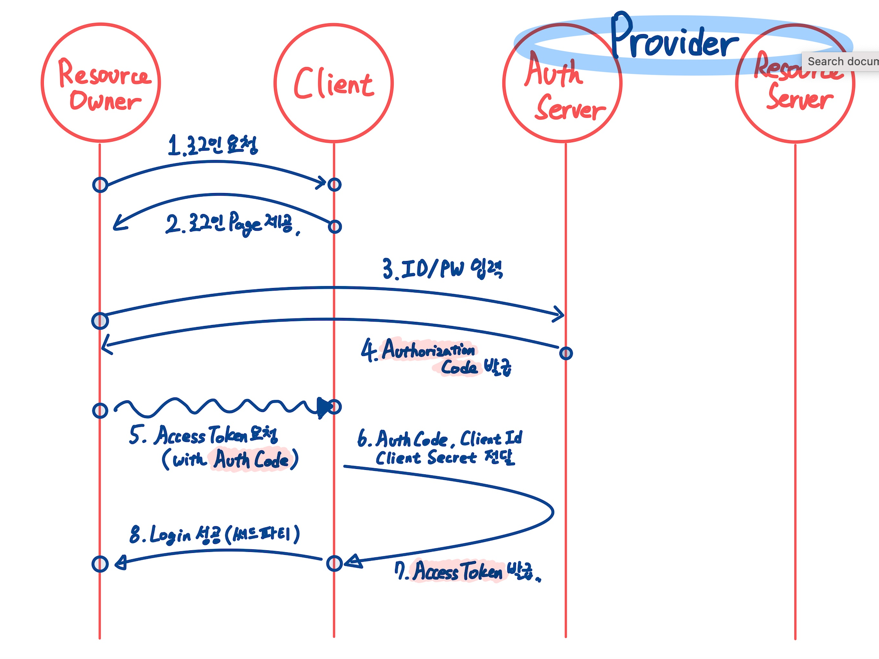 Provider
Resource
Owner
Client
Auth
Server
Resource
Server
Search docum
1.로그인 요청
2.로그인 Page 제공.
3.ID/PW 입력
4.Authorization
Code 발급
5. Access Token 요청
(with Auth Code)
6.Auth Code, Client Id
Client Secret 전달
7.Access Token 발급.
8.Login 성공(써드파티)